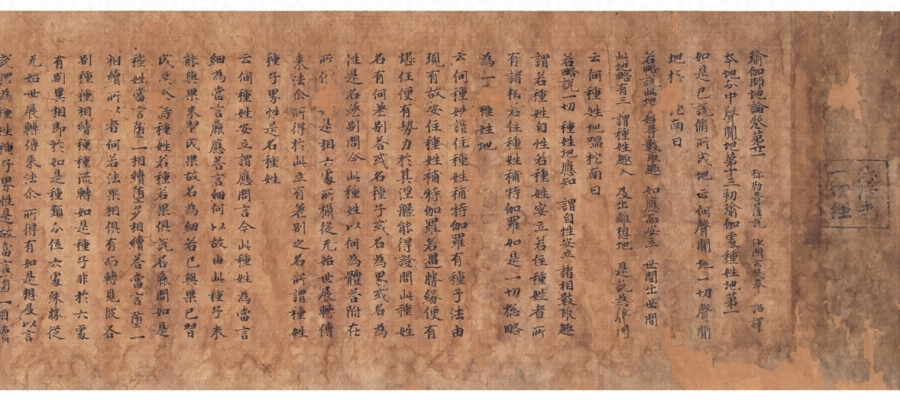 瑜伽師地論卷第廿一 弥勒菩薩說 沙門玄奘奉 詔譯
本地分中聲聞地第十三初瑜伽處種姓地第一
如是已說修所成地云何聲聞地一切聲聞
地
若略說此地 姓等數取趣 如應而安立 世間出世間
此地略有三 謂種姓趣入 及出離想地 是說為聲聞
云何種姓地嗢柁南曰
若略說一切 種姓地應知 謂自性安立 諸相數取趣
謂若種姓自性若種姓安立若住種姓者所
有諸相若住種姓補特伽羅如是一切総略
為一 種姓地
云何種姓謂住種姓補特伽羅有種子法由
現有故安住種姓補特伽羅若遇勝緣便有
堪任便有勢力於其涅槃能得證問此種姓
名有何差別答或名種子或名為界或名為
性是名差別問今此種姓以何為體答附在
所依 是相六處所攝從无始世展轉傳
來法尒所得於此立有差別之名所謂種姓
種子界性是名種姓
云何種姓安立謂應問言今此種姓為當言
細為當言麁應答言細何以故由此種子未
能與果未習成果故名為細若已與果已習
成果 種姓若種若果俱說名麁問如是
種姓當言墮一相續墮多相續答當言墮一
相續所以者何若法異相俱有而轉見彼各
別種種相續種種流轉如是種子非於六處
有別異相即於如是種類分位六處殊勝從
无始世展轉傳來法尒所得有如是想及以言
說謂為種姓種子界性是故當言墮一相續